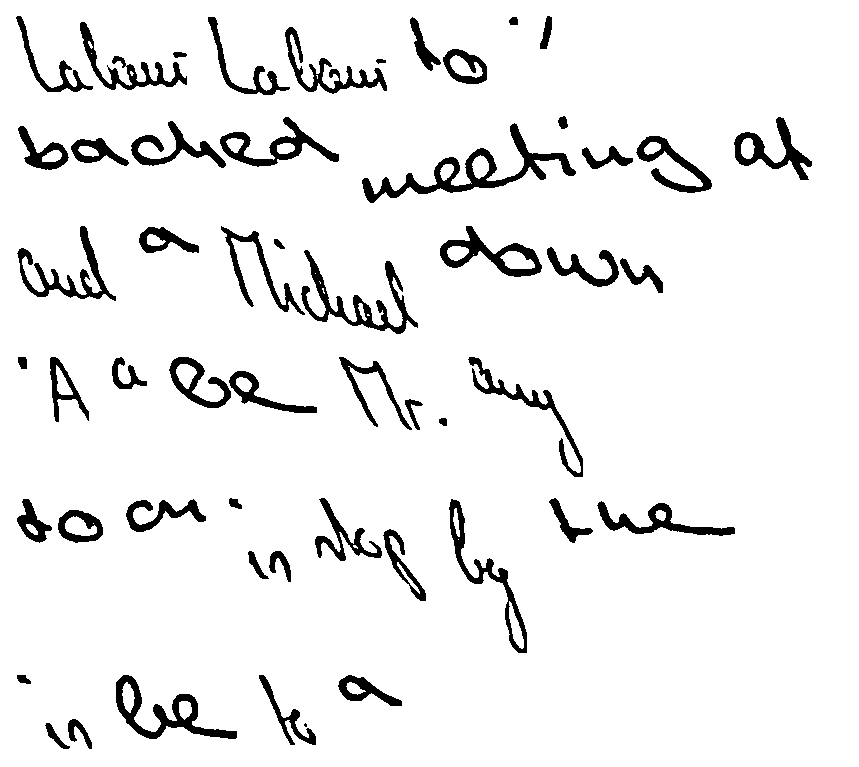 Labour Labour to . '
backed meeting at
and a Michael down
. A a be Mr. any
to on . in stop by the
. in be to a